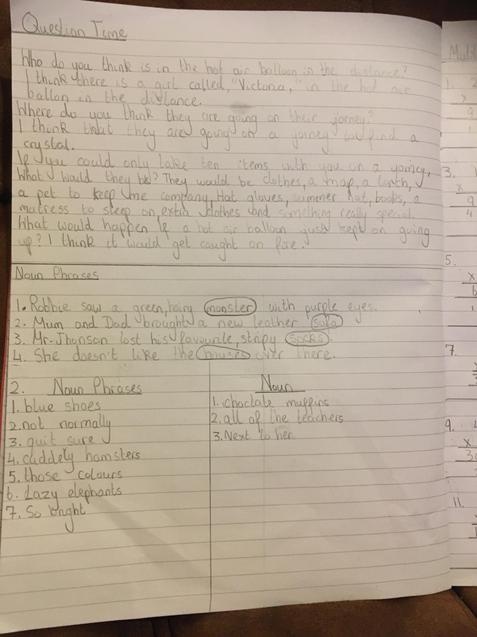 Question Time
Who do you think is in the hot air balloon in the distance?
I think there is a girl called, "Victoria," in the hot air
ballon in the distance.
Where do you think they are going on their jorney?
I think that they are going on a jorney to find a
crystal.
If you could only take ten items with you on a jorney,
What would they be? They would be clothes, a map, a torch,
a pet to keep me company, Hat gloves, summer hat, books, a
matress to sleep on, extra clothes and something really special.
What would happen if a hot air balloon just kept on going
up? I think it would get caught on fire.
Noun Phrases
1. Robbie saw a green, hairy monster with purple eyes.
2. Mum and Dad brought a new leather sofa
3. Mr. Jhonson lost his favourite, stripy socks.
4. She doesn't like the over there.
2. Noun Phrases
1. blue shoes
2. not normally
3. quit sure
4. cuddely hamsters
5. those colours
6. Lazy elephants
7. So bright
Noun
1. choclate muffins
2. all of the teachers
3. Next to her
1.
x
9
3.
x
9
4
5.
x
6
7.
9.
x
3
11.